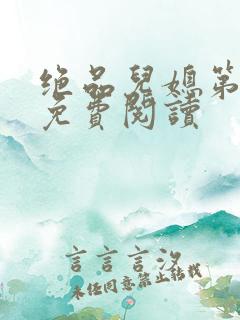 绝品兒媳第
免費閱讀
言言言汐
未经同意禁止转载